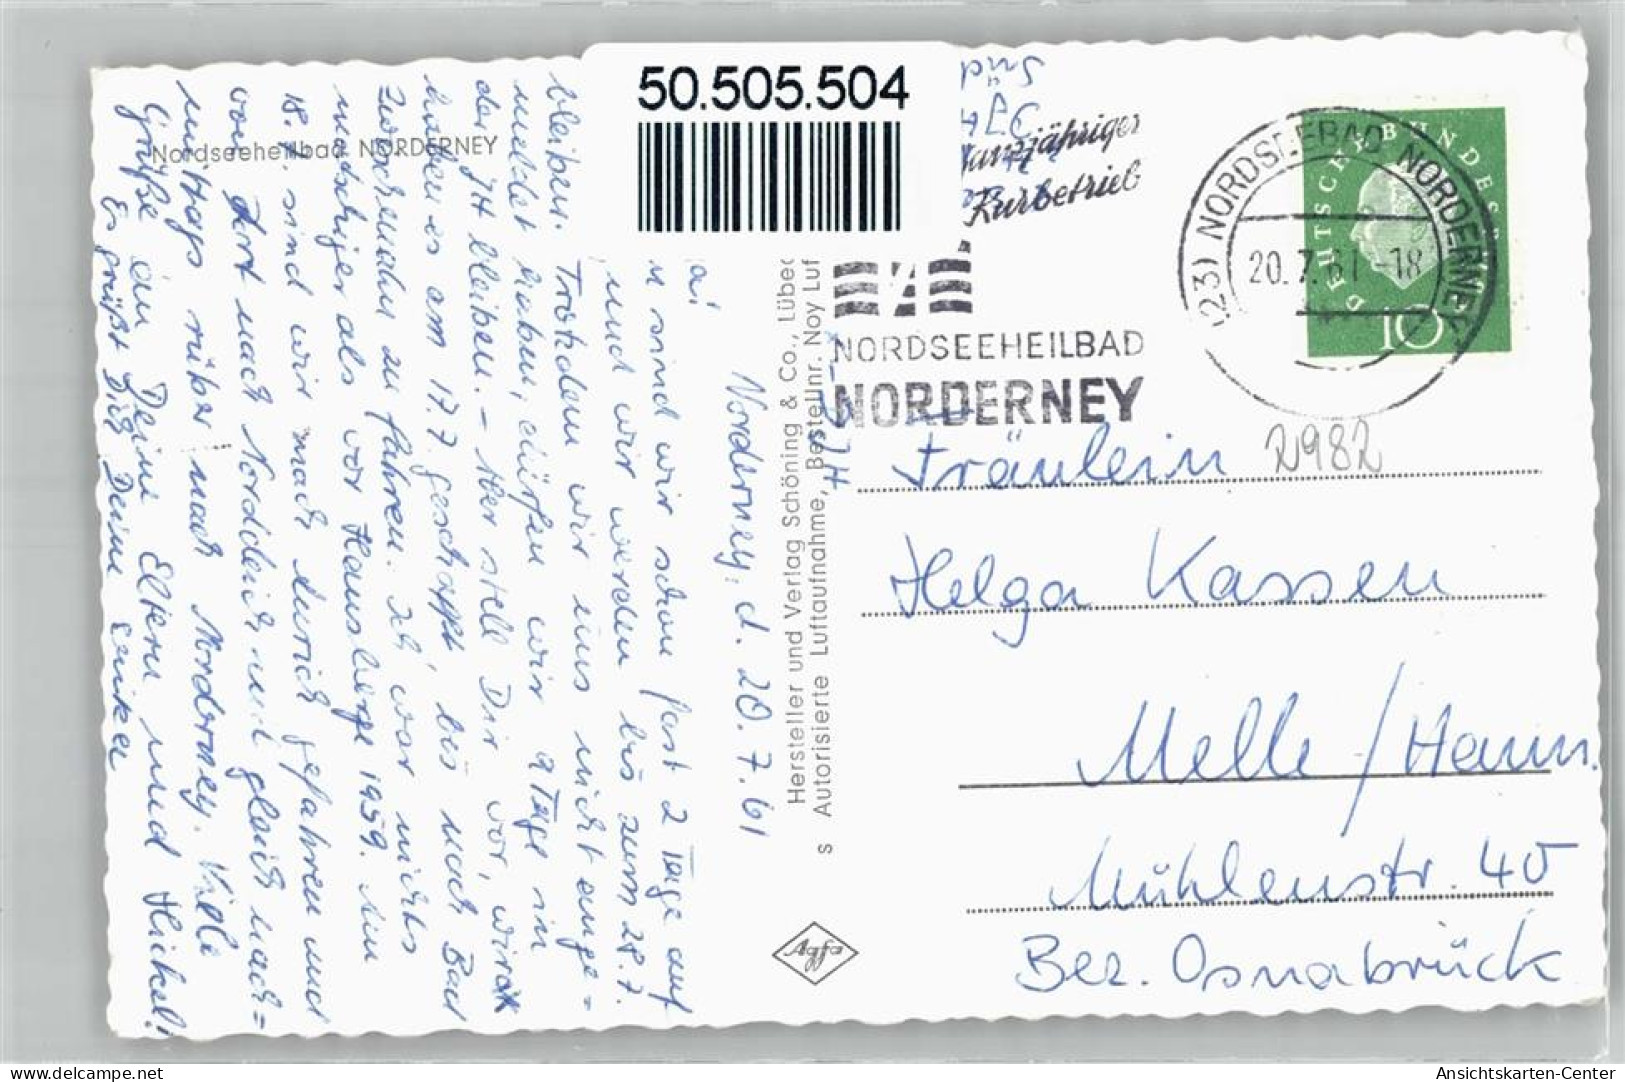 50.505.504
Nordseeheilbad NORDERNEY
Ganzjähriger
Kurbetrieb
NORDSEEHEILBAD
NORDERNEY
(23) NORDSEEBAD NORDERNEY
20.7.61-18
DEUTSCHE BUNDESPOST
10
Norderney, d. 20.7.61
sind wir schon fast 2 Tage auf
und wir werden bis zum 28.7.
bleiben. Trotzdem wir uns nicht ange=
meldet haben, dürfen wir 9 Tage in
der JH bleiben. – Aber stell Dir vor, wir
haben es am 17.7. geschafft, bis nach Bad
Zwischenahn zu fahren. Es war nichts
matschiger als vor Hausberge 1959. Am
18.7. sind wir nach Aurich gefahren und
von dort nach Norddeich und gleich nach=
mittags rüber nach Norderney. Viele
Grüße an Deine Eltern und Michel!
Es grüßt Dich Deine
Hersteller und Verlag Schöning & Co., Lübec
Autorisierte Luftaufnahme, Bestellnr. Noy Luf
s
Agfa
Fräulein
2982
Helga Kassen
Melle / Hann.
Mühlenstr. 40
Bez. Osnabrück
Ansichtskarten-Center
delcampe.net